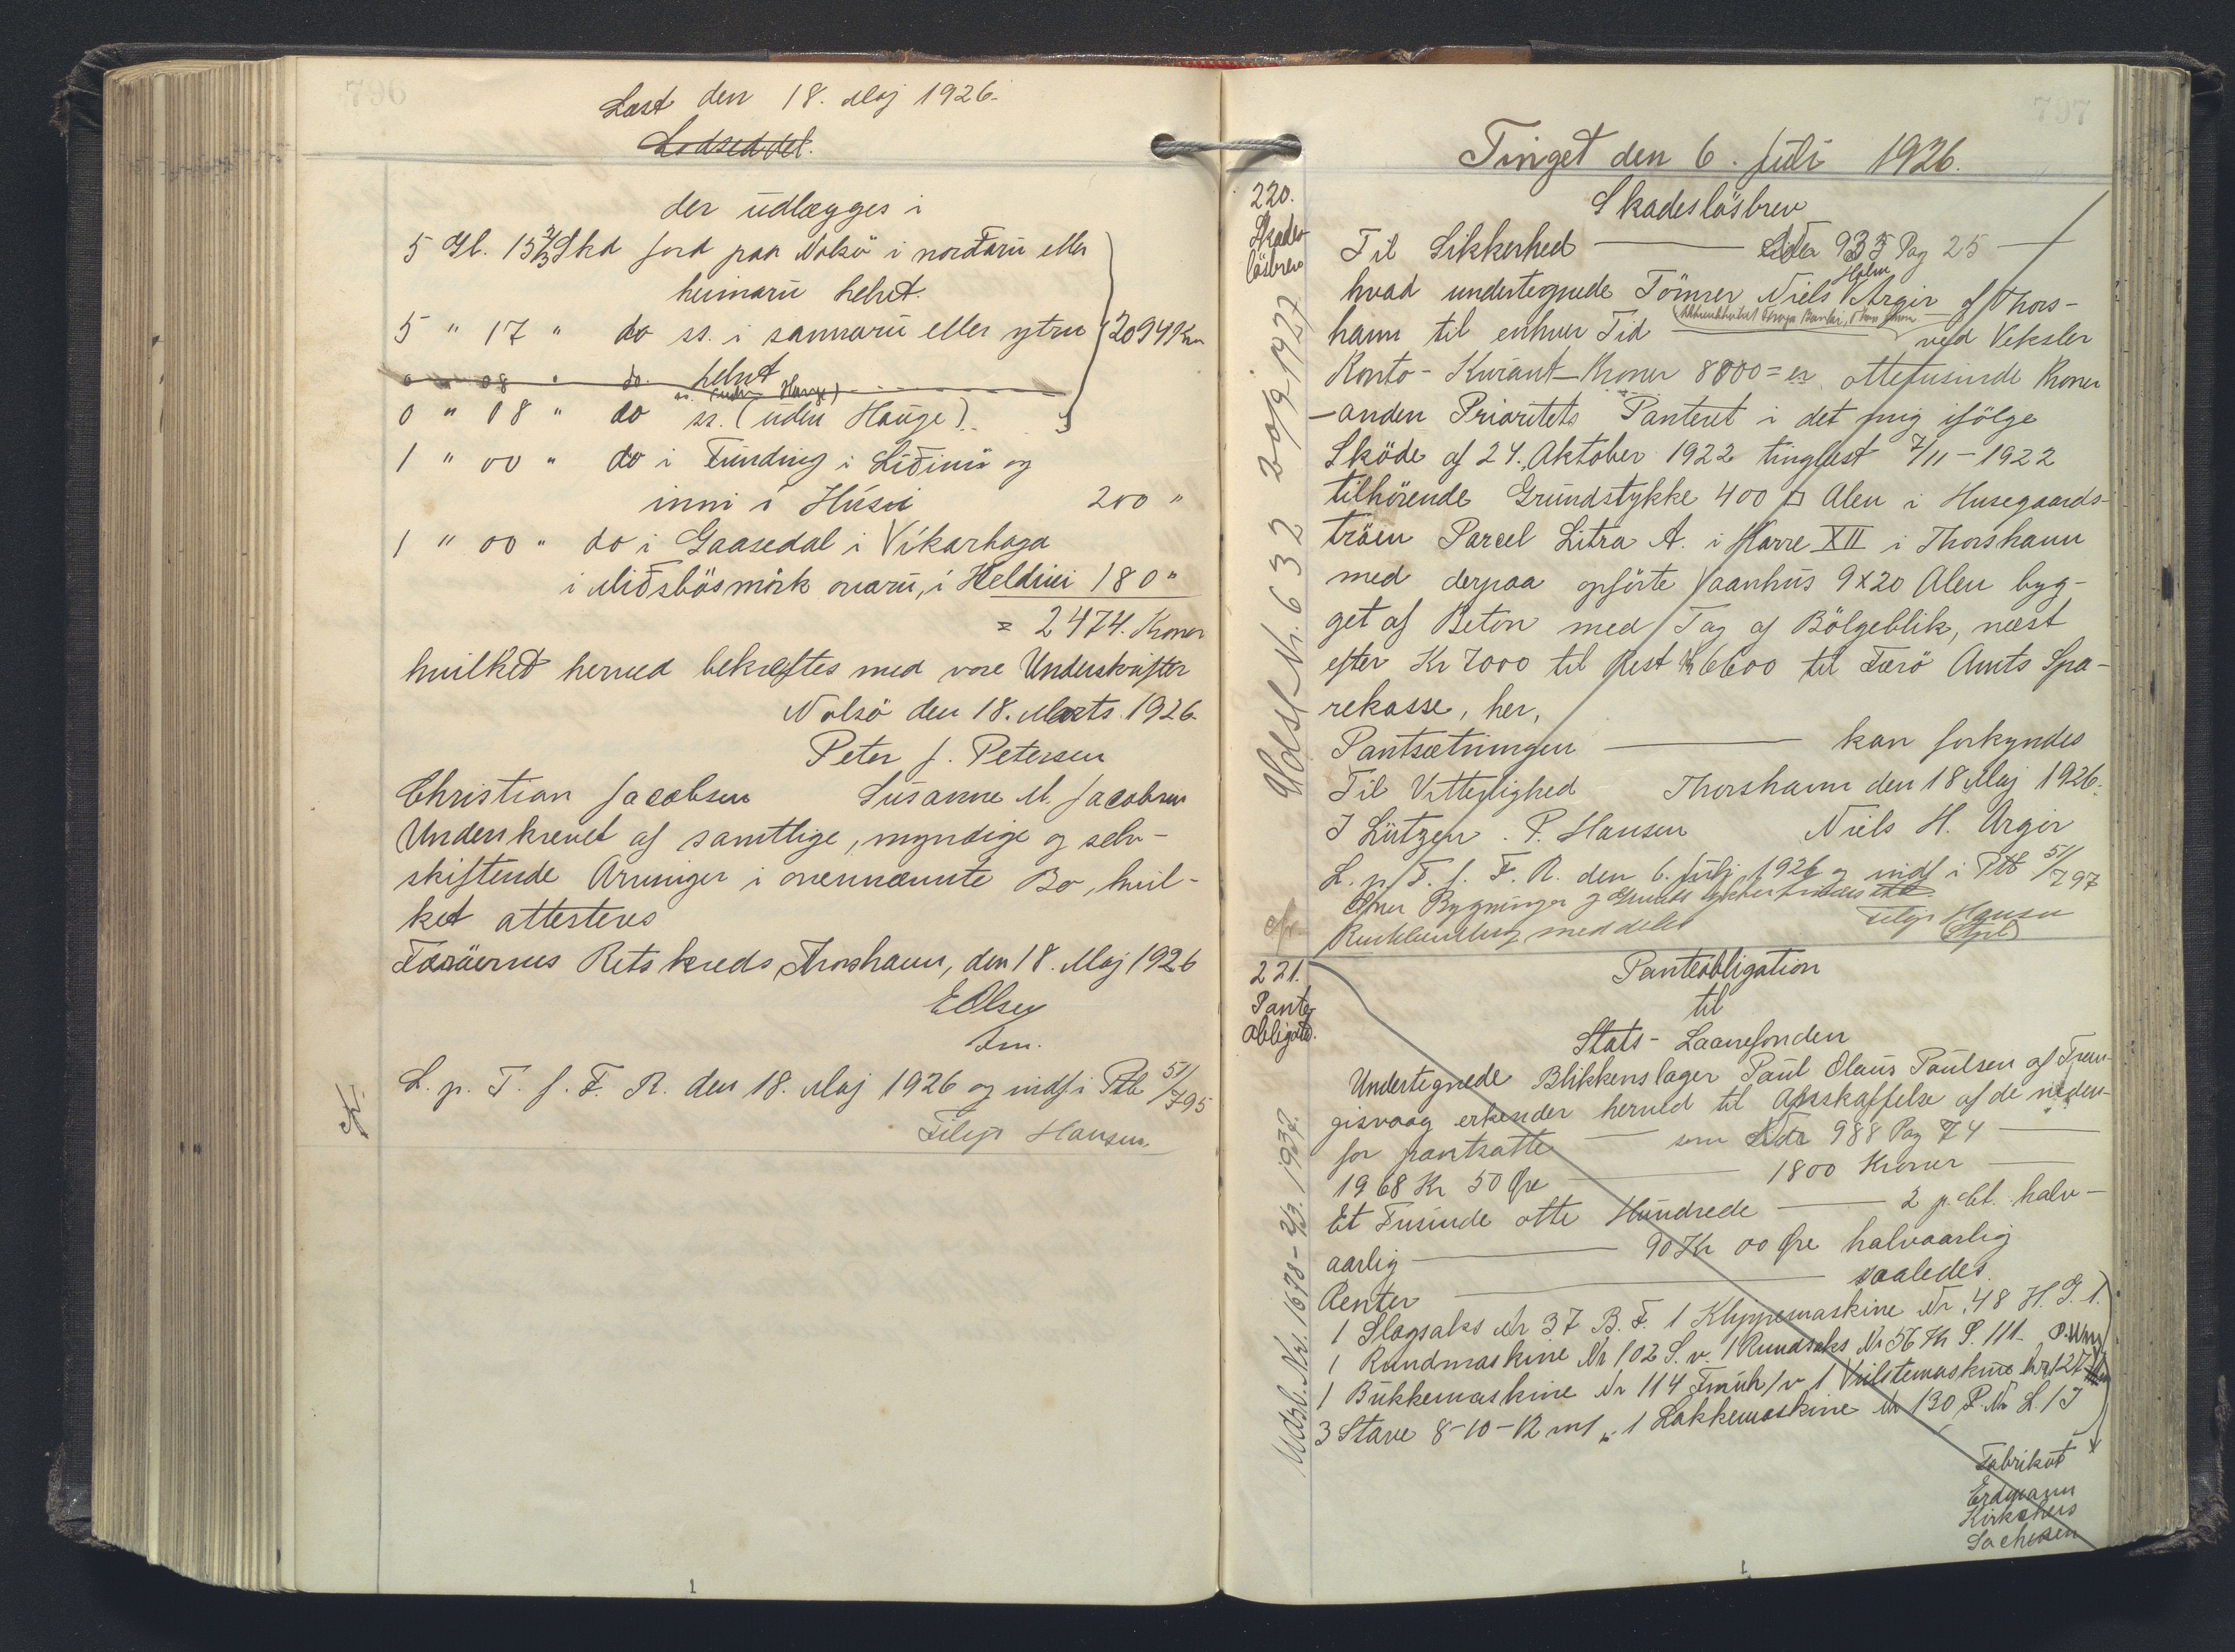 796
Læst den 18. Maj 1926.
Lodseddel.
der udlægges i
5 Gl. 15 2/3 Skd Jord paa Nolsö i norðaru eller
heimaru helvt.
5 " 17 " do ss. i sunnaru eller ytru
helvt
2094 Kr
0 " 08 " do. ss. (uden Hauge)
0 " 08 " do ss. (uden Hauge)
1 " 00 " do i Funding i Liðinü og
inni í Húsi 200 "
1 " 00 " do i Gaasedal i Víkarhaga
i Miðsbösmörk ovaru, i Heldini 180 "
= 2474. Kroner
hvilket herved bekræftes med vore Underskrifter
Nolsö den 18. Marts. 1926.
Peter J. Petersen
Christian Jacobsen Susanne M. Jacobsen
Underskrevet af samtlige, myndige og selv-
skiftende Arvinger i ovennævnte Bo, hvil-
ket attesteres
Færöernes Retskreds, Thorshavn, den 18. Maj 1926
E Olsen
fm.
L. p. T. f. F. R. den 18. Maj 1926 og indf i Ptb 51/795
Filip Hansen.
797
Tinget den 6. Juli 1926.
220.
Skades-
lösbrev
Skadeslösbrev
Til Sikkerhed Lida 935 Pag 25
hvad undertegnede Tömrer Niels Holm Argir af Thors-
havn til enhver Tid ved Veksler
Konto-Kurant-Kroner 8000 = er ottetusinde Kroner
-anden Prioritets Panteret i det mig ifölge
Sköde af 24. Oktober 1922 tinglæst 7/11-1922
tilhörende Grundstykke 400 □ Alen i Husegaards-
tröen Parcel Litra A. i Karre XII i Thorshavn
med derpaa opförte Vaanhus 9x20 Alen byg-
get af Beton med Tag af Bölgeblik, næst
efter Kr 7000 til Rest Kr 6600 til Færö Amts Spa-
rekasse, her,
Pantsætningen kan forkyndes
Til Vitterlighed Thorshavn den 18 Maj 1926.
J Lützen. P. Hansen Niels H. Argir
L. p. T. f. F. R. den 6. Juli 1926 og indf i Ptb 51/797
Filip Hansen
Udsl. Nr. 632 20/9 1927
221.
Pante
obligatio.
Panteobligation
til
Stats-Laanefonden
Undertegnede Blikkenslager Paul Olaus Poulsen af Tran-
gisvaag erkender herved til Anskaffelse af de neden-
for pantsatte som Lida 988 Pag 74
1968 Kr 50 Øre 1800 Kroner
Et Tusinde otte Hundrede 2 p. Ct. halv-
aarlig 90 Kr 00 Øre halvaarlig
Renter saaledes.
1 Slagsaks Nr 37 B. F. 1 Klippemaskine Nr. 48 H. G. 1.
1 Rundmaskine Nr 102 S. v. 1 Rundsaks Nr 56 Kr S. 111.
1 Bukkemaskine Nr 114 1 Vulstemaskine Nr 127
3 Stave 8-10-12 m/ 1 Lokkemaskine Nr 130 P. Nr L. 1 J
Fabrikat
Erdmann
Kircheis
Sachsen
Udsl. Nr. 1678-2/3. 1937.
1
1